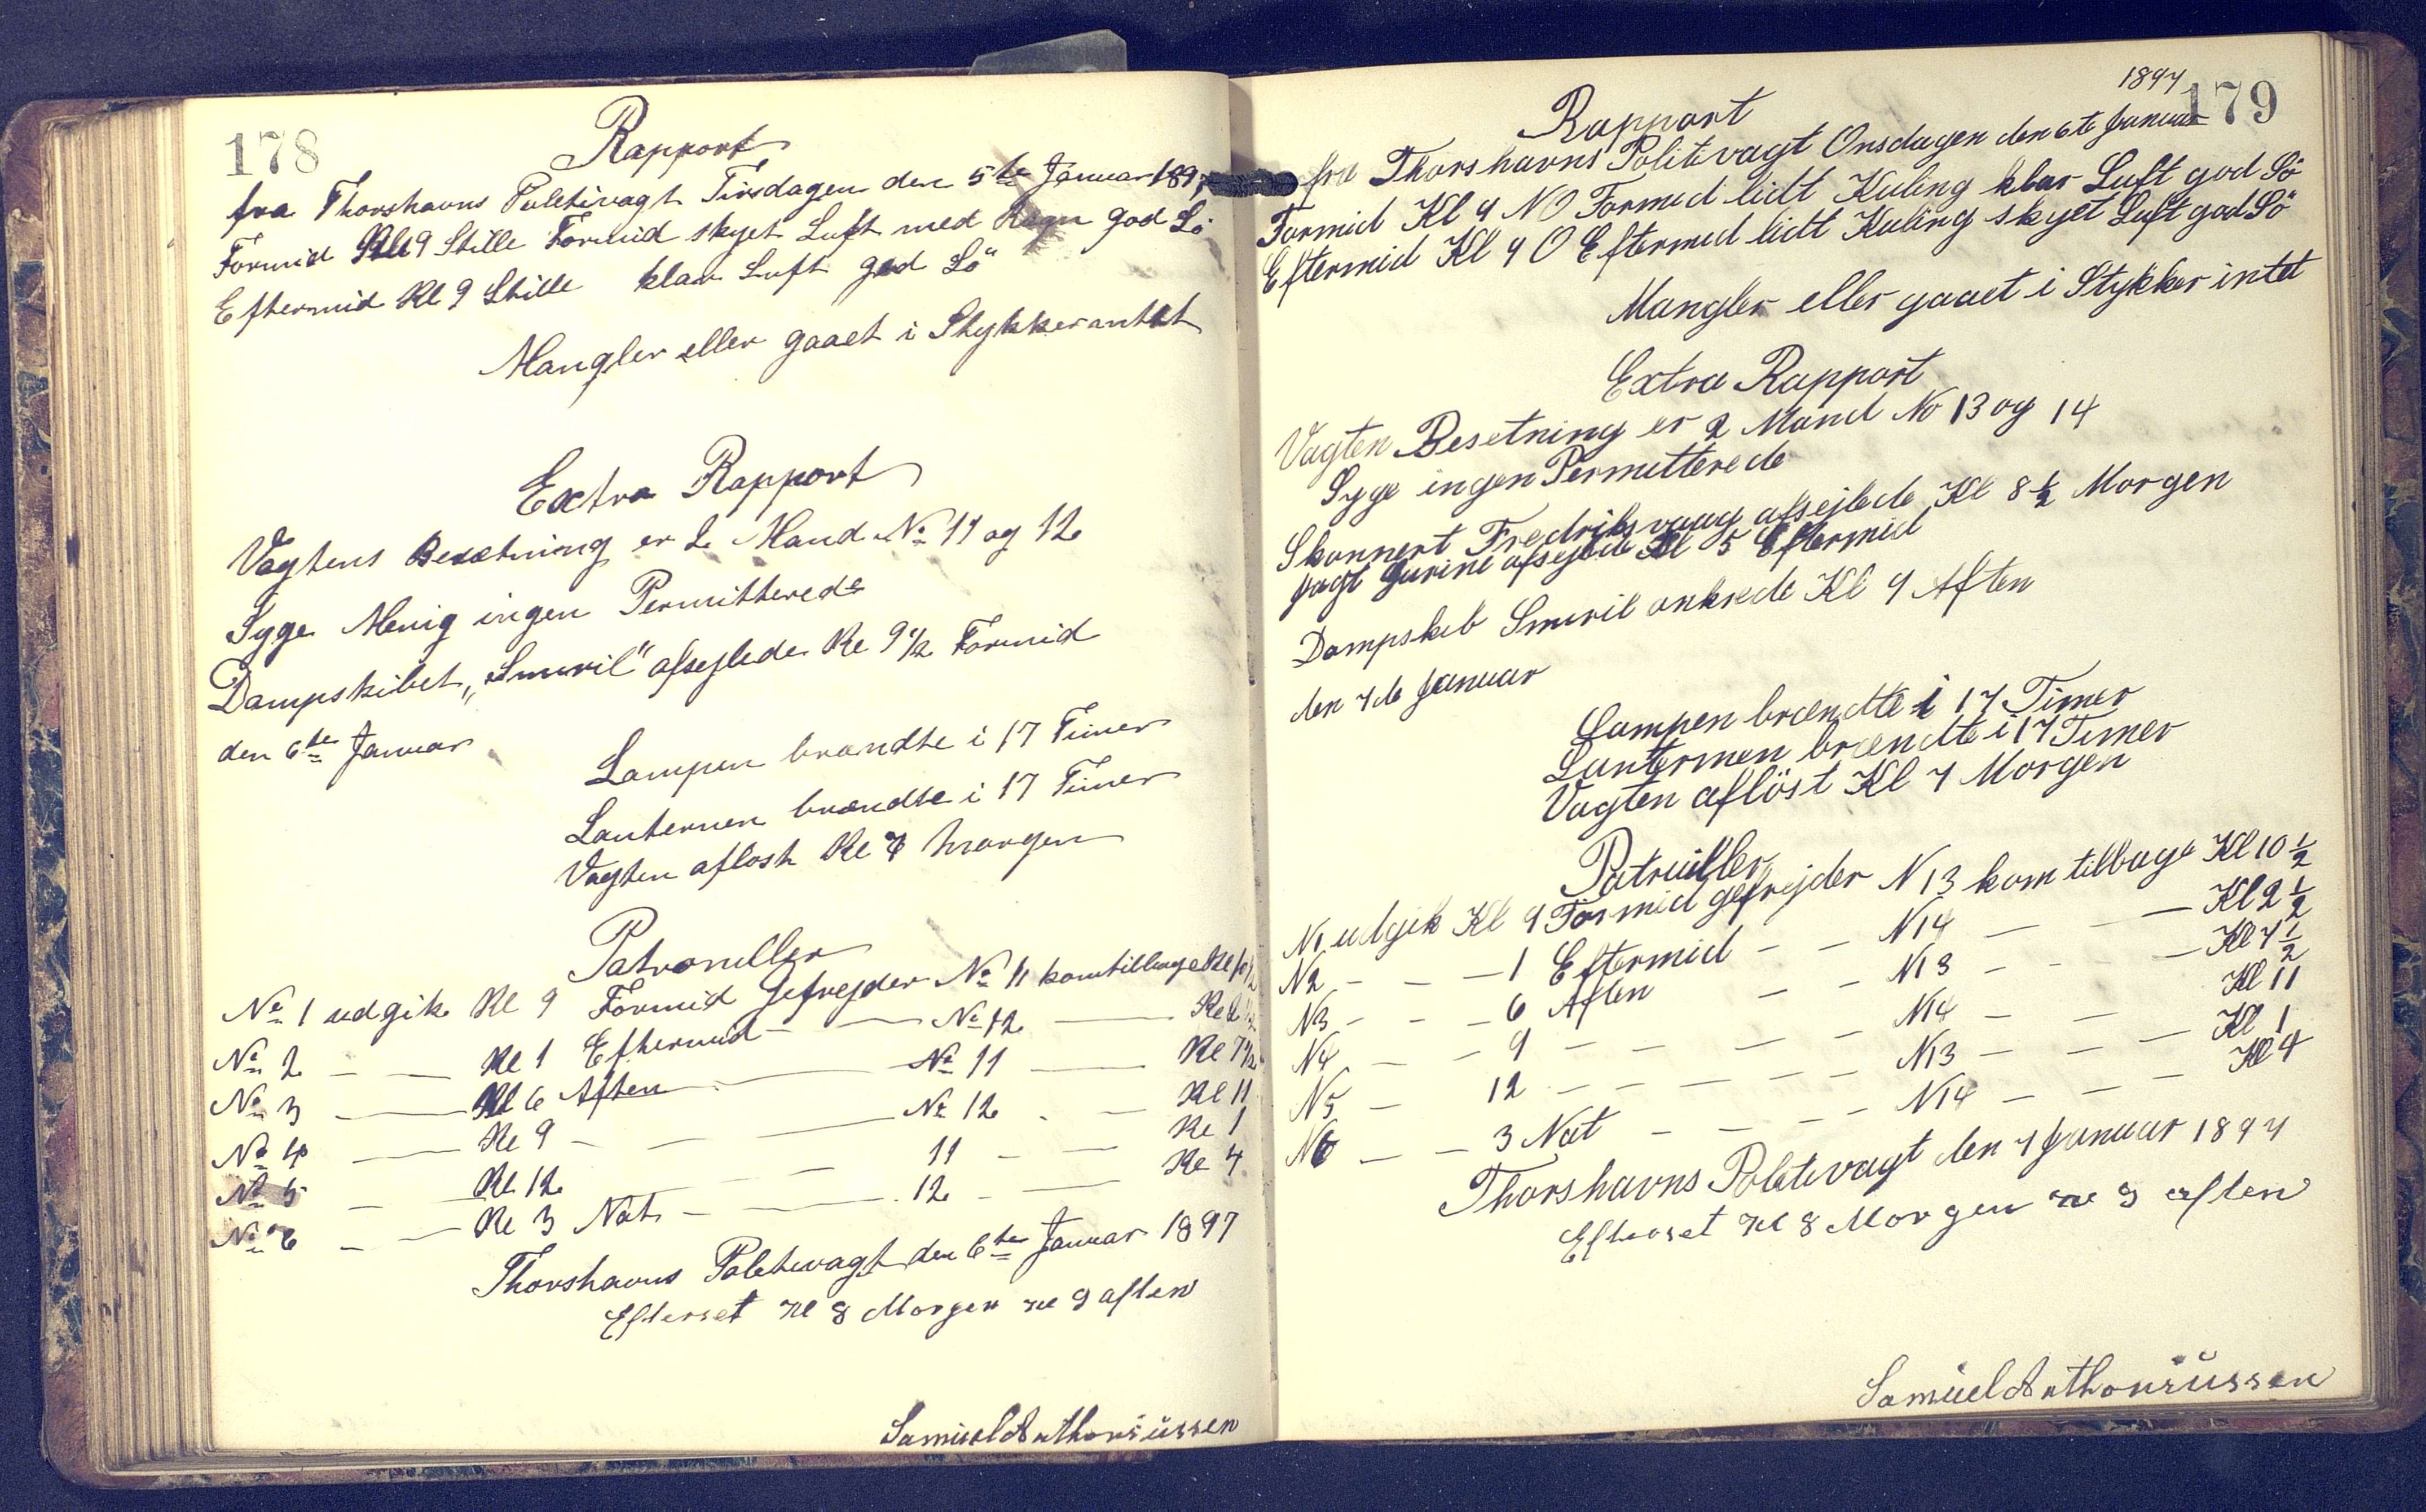 178
Rapport
fra Thorshavns Politivagt Tirsdagen den 5te Januar 1897
Formid Kl 9 Stille Formid skyet Luft med Regn god Sö
Eftermid Kl 9 Stille klar Luft god Sö
Mangler eller gaaet i Stykker intet
Extra Rapport
Vagtens Besætning er 2 Mand No 11 og 12
Syge Menig ingen Permitterede
Dampskibet "Smiril" afsejlede Kl 9 1/2 Formid
den 6te Januar
Lampen brændte i 17 Timer
Lanternen brændte i 17 Timer
Vagten aflöst Kl 7 Morgen
Patrouller
No 1 udgik Kl 9 Formid Gefrejder No 11 kom tilbage Kl 10 1/2
No 2 — — Kl 1 Eftermid — — No 12 — Kl 2 1/2
No 3 — Kl 6 Aften — No 11 — Kl 7 1/2
No 4 — Kl 9 — — — No 12 - — Kl 11
No 5 — — Kl 12 — — — 11 — — Kl 1
No 6 — — Kl 3 Nat — — 12 - — Kl 4
Thorshavns Politivagt den 6te Januar 1897
Efterset Kl 8 Morgen Kl 9 aften
Samuel Anthoniussen
1897
179
Rapport
fra Thorshavns Politivagt Onsdagen den 6te Januar
Formid Kl 9 NO Formid lidt Kuling klar Luft god Sö
Eftermid Kl 9 O Eftermid lidt Kuling skyet Luft god Sö
Mangler eller gaaet i Stykker intet
Extra Rapport
Vagten Besetning er 2 Mand No 13 og 14
Syge ingen Permitterede
Skonnert Fredriksvaag afsejlede Kl 8 1/2 Morgen
Jagt Gurine afsejlede Kl 5 Eftermid
Dampskib Smiril ankrede Kl 9 Aften
den 7de Januar
Lampen brændte i 17 Timer
Lanternen brændte i 17 Timer
Vagten aflöst Kl 7 Morgen
Patruiller
N1 udgik Kl 9 Formid gefrejder N13 kom tilbage Kl 10 1/2
N2 — — — 1 Eftermid — — N14 — — — Kl 2 1/2
N3 — — — 6 Aften — — N13 — — — Kl 7 1/2
N4 — — 9 — — — — N14 — — — Kl 11
N5 — 12 — — — — — N13 — — — Kl 1
N6 — — 3 Nat — — — — N14 — — — Kl 4
Thorshavns Politivagt den 7 Januar 1897
Efterset Kl 8 Morgen Kl 9 aften
Samuel Anthoniussen